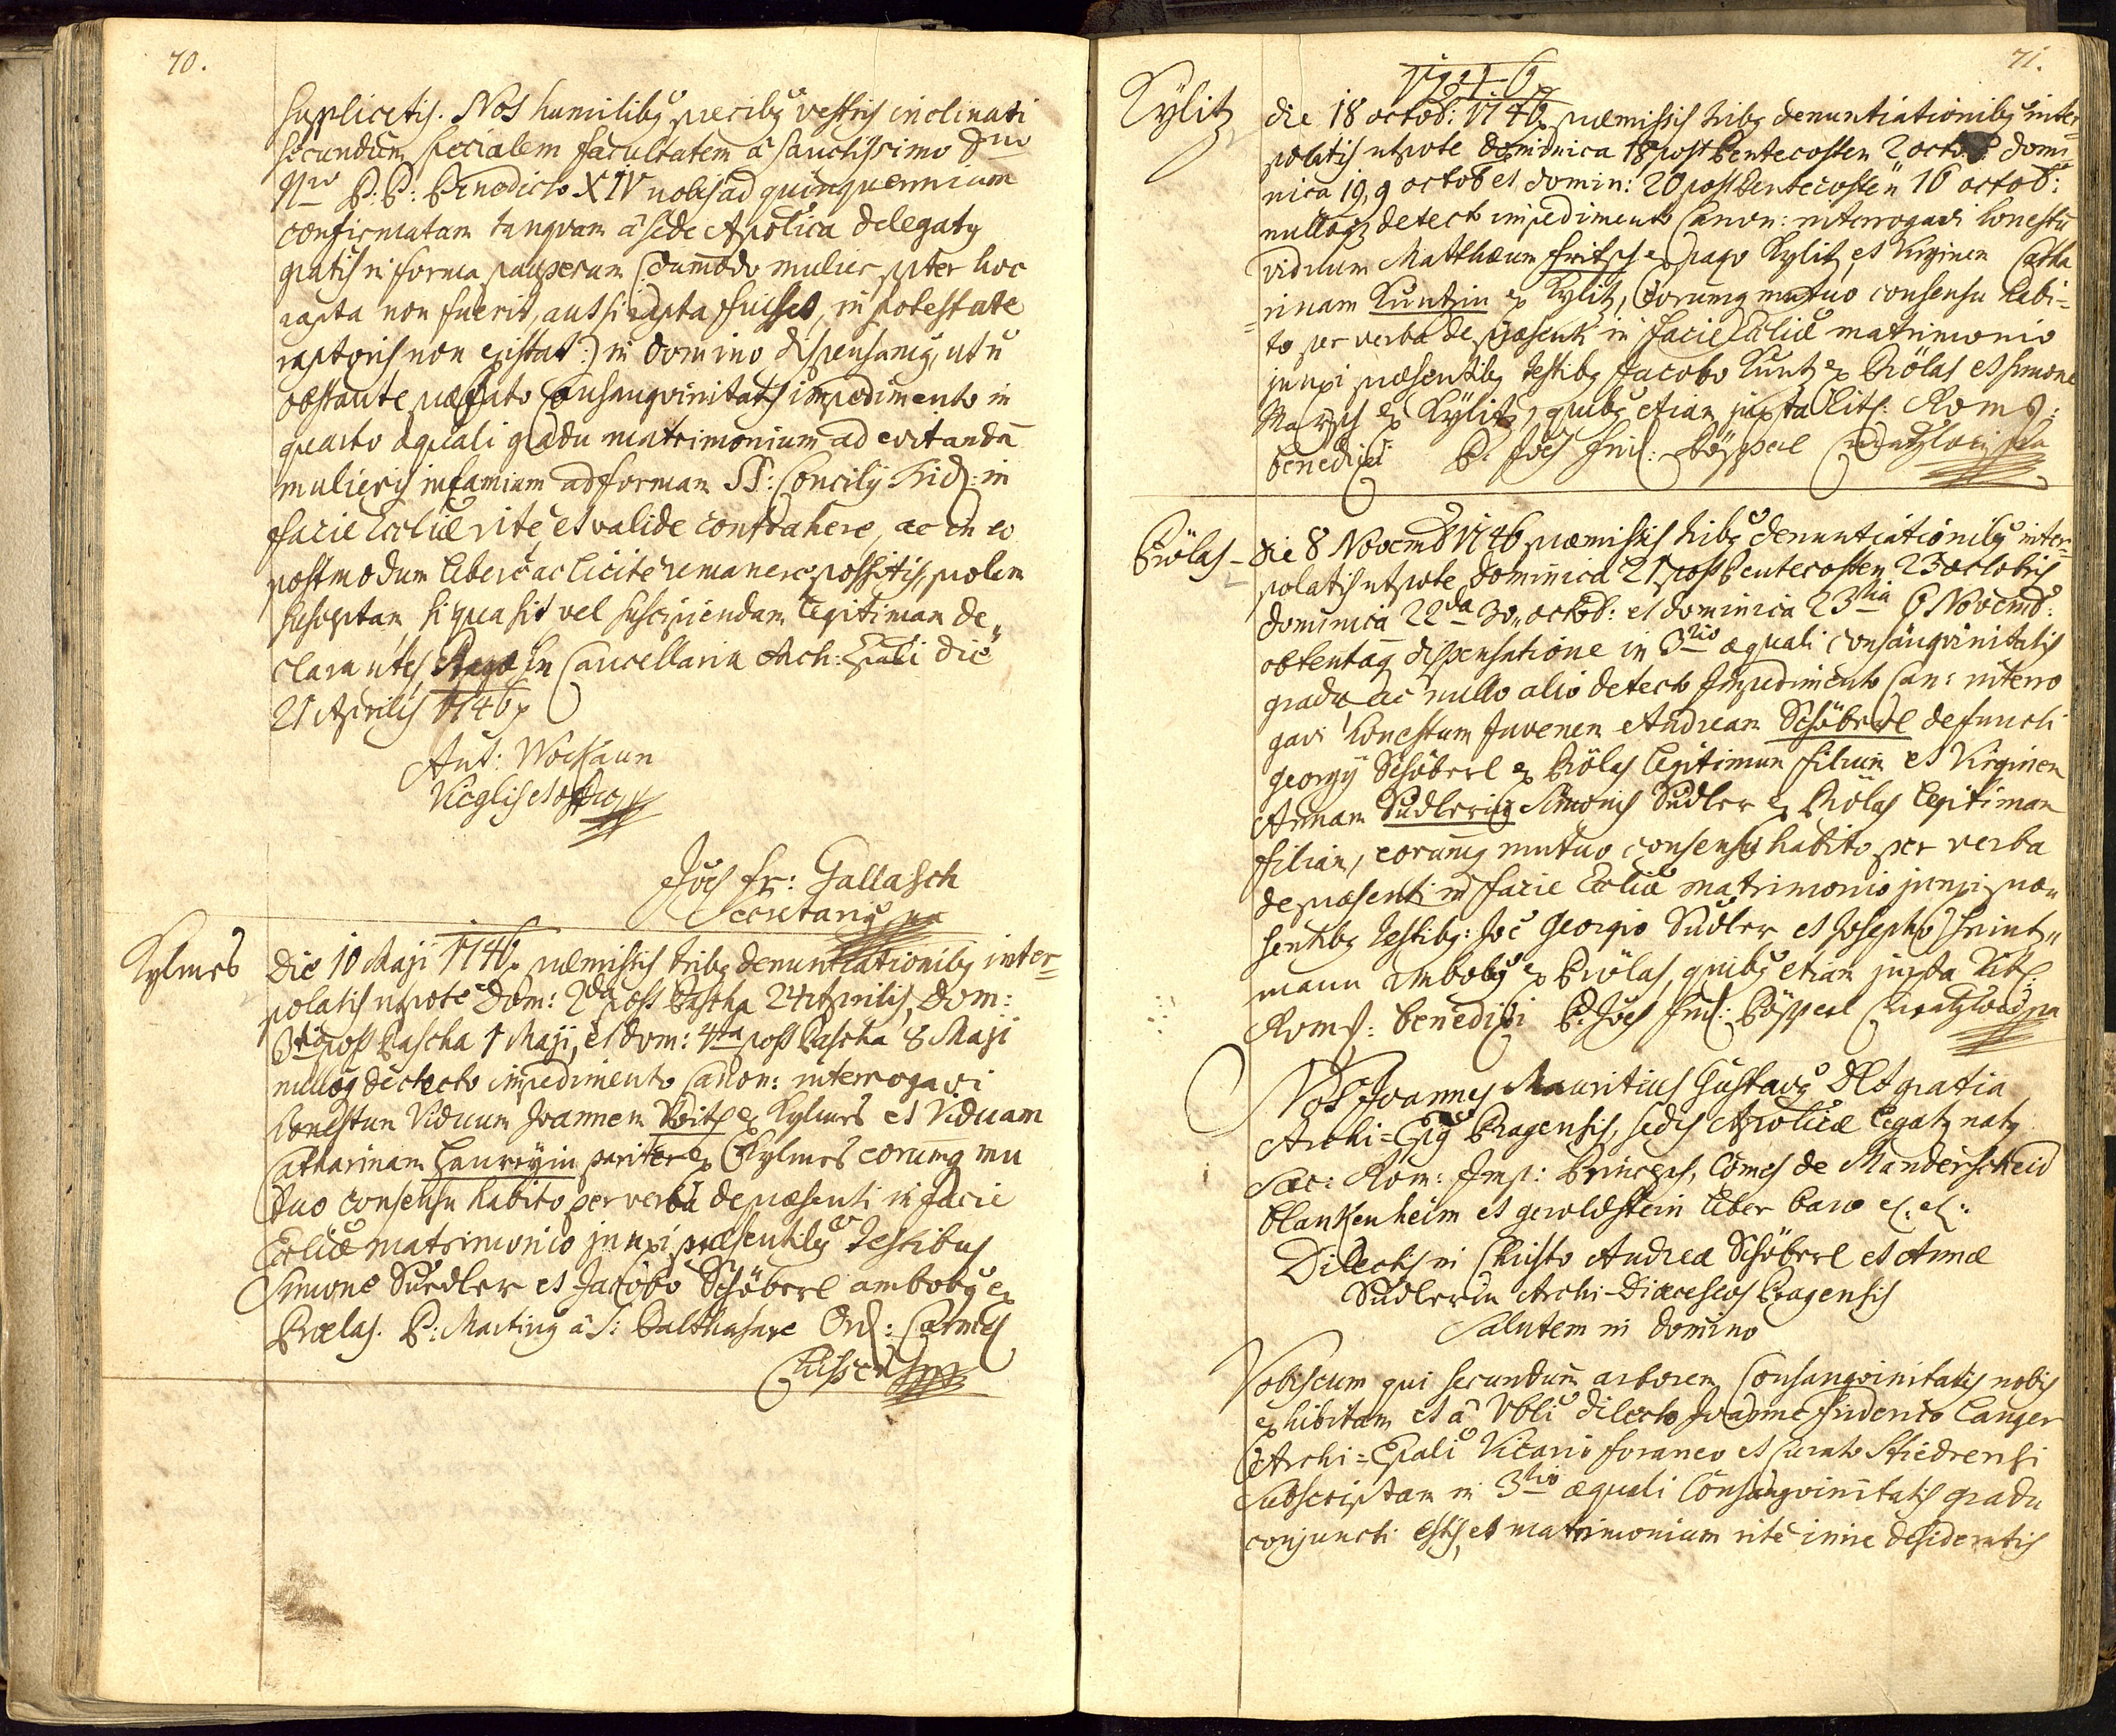 70.
supplicetis. Nos humilibq precibq vestris inclinati
secundum specialem facultatem à Sanctissimo Dno
Nro P: P: Benedicto XIV nobis ad quinquennium
confirmatam tanquam à sede Aplica delegatq
gratis in forma pauperum (:dummodo mulier ppter hoc
rapta non fuerit, aut si rapta fuisset, in potestate
raptoris non existat:) in Domino dispensamq, ut ñ
obstante præfato Consanqvinitatis impedimento in
quarto æquali gradu matrimonium ad evitandã
mulieris infamiam ad formam SS: Concilij Trid: in
facie Ecliæ rite, et valide contrahere, ac in eo
postmodum liberè ac licitè remanere possitis, prolem
susceptam, si qua sit vel suscipiendam legitimam de„
clarantes, Pragæ in Cancellaria Archi-Epali die
21 Aprilis 1746
Ant: Wokaun
Vic glis et offlis
Joes Fr: Gallasch
Secretariq
Kylmes
Die 10 Maji 1746 præmissis tribq denuntiationibq inter=
polatis utpote Dom: 2da post Pascha 24 Aprilis, Dom:
3tia post Pascha 1 Maji, et dom: 4ta post Pascha 8 Maji
nulloq detecto impedimento Canon: interrogavi
honestum Viduum Joannem ex Kylmes et Viduam
Catharinam pariter ex Kylmes eorumq mu
tuo consensu habito per verba de præsenti in facie
Ecliæ matrimonio junxi præsentibq Testibus
Simone Suedler et Jacobo Schöberl ambobq ex
Prælas. P: Martinq à S: Balthasare Ord:
71.
1746
Kylitz
die 18 octob: 1746 præmissis tribq denuntiationibq inter=
polatis utpote dominica 18 post Pentecosten 2 octob: domi=
nica 19, 9 octob et domin: 20 post Pentecosten 16 octob:
nulloq detecto impedimento Canon: interrogavi honestũ
viduum Matthæum Fritsch ex pago Kylitz et Virginem Catha
rinam Kuntzin ex Kylitz, eorumq mutuo consensu habi=
to per verba de præsenti in facie Ecliæ matrimonio
junxi præsentibq testibq Jacobo Kuntz ex Prölas et Simone
ex Kylitz, quibq etiam juxta Rit: Rom:
benedixi P. Joes
Prölas
die 8 Novemb 1746 præmissis tribq denuntiationibq inter=
polatis utpote dominica 21 post Pentecosten 23 octobris
dominica 22da 30 octob: et dominica 23tia 6 Novemb:
obtentaq dispensatione in 3tio æquali consanqvinitatis
gradu ac nullo alio detecto Impedimento Can: interro
gavi honestum Juvenem Andream Schöberl defuncti
Georgij Schöberl ex Prölas legitimum filium et Virginem
Annam Sudlerin Simonis Sudler ex Prölas legitimam
filiam, eorumq mutuo consensu habito per verba
de præsenti in facie Ecliæ matrimonio junxi præ„
sentibq Testibq: Joe Georgio Sudler et Josepho Heintz„
mann ambobq ex Prölas, quibq etiam juxta Rit:
Rom: benedixi P: Joes
Nos Joannes Mauritius Gustavq DEI gratia
Archi=Epq Pragensis, sedis Aplicæ legatq natq
Sac: Rom: Imp: Princeps, Comes de Manderscheid
Blankenheim et geroldstein liber baro
Dilectis in Christo Andreæ Schöberl et Annæ
Sudlerin Archi-Diæceseos Pragensis
Salutem in Domino
Vobiscum qui secundum arborem Consanqvinitatis nobis
exhibitam et à Nobis dilecto Joanne Friderico Langer
Archi=Epali Vicario foraneo et Curato Stiedrensi
Subscriptam in 3tio æquali Consanqvinitatis gradu
conjuncti estis, et matrimonium rite inire desideratis